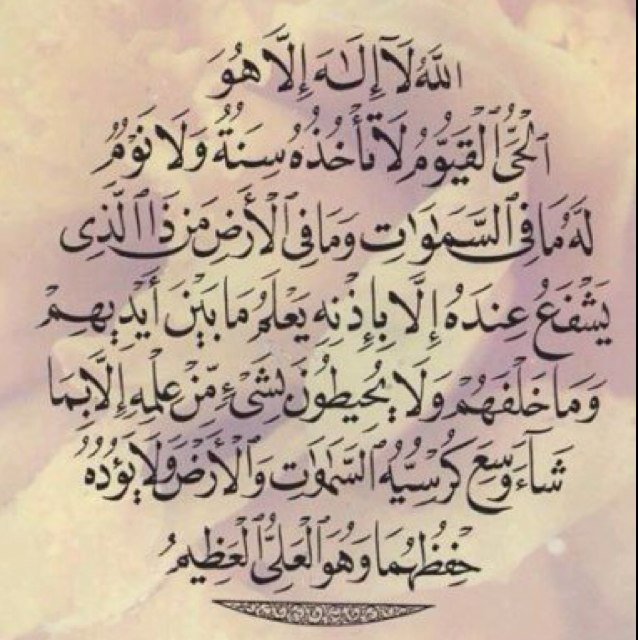 اللَّهُ لَآ إِلَٰهَ إِلَّا هُوَ
ٱلْحَىُّ ٱلْقَيُّومُ لَا تَأْخُذُهُۥ سِنَةٌ وَلَا نَوْمٌ
لَّهُۥ مَا فِى ٱلسَّمَٰوَٰتِ وَمَا فِى ٱلْأَرْضِ مَن ذَا ٱلَّذِى
يَشْفَعُ عِندَهُۥٓ إِلَّا بِإِذْنِهِۦ يَعْلَمُ مَا بَيْنَ أَيْدِيهِمْ
وَمَا خَلْفَهُمْ وَلَا يُحِيطُونَ بِشَىْءٍ مِّنْ عِلْمِهِۦٓ إِلَّا بِمَا
شَآءَ وَسِعَ كُرْسِيُّهُ ٱلسَّمَٰوَٰتِ وَٱلْأَرْضَ وَلَا يَـُٔودُهُۥ
حِفْظُهُمَا وَهُوَ ٱلْعَلِىُّ ٱلْعَظِيمُ